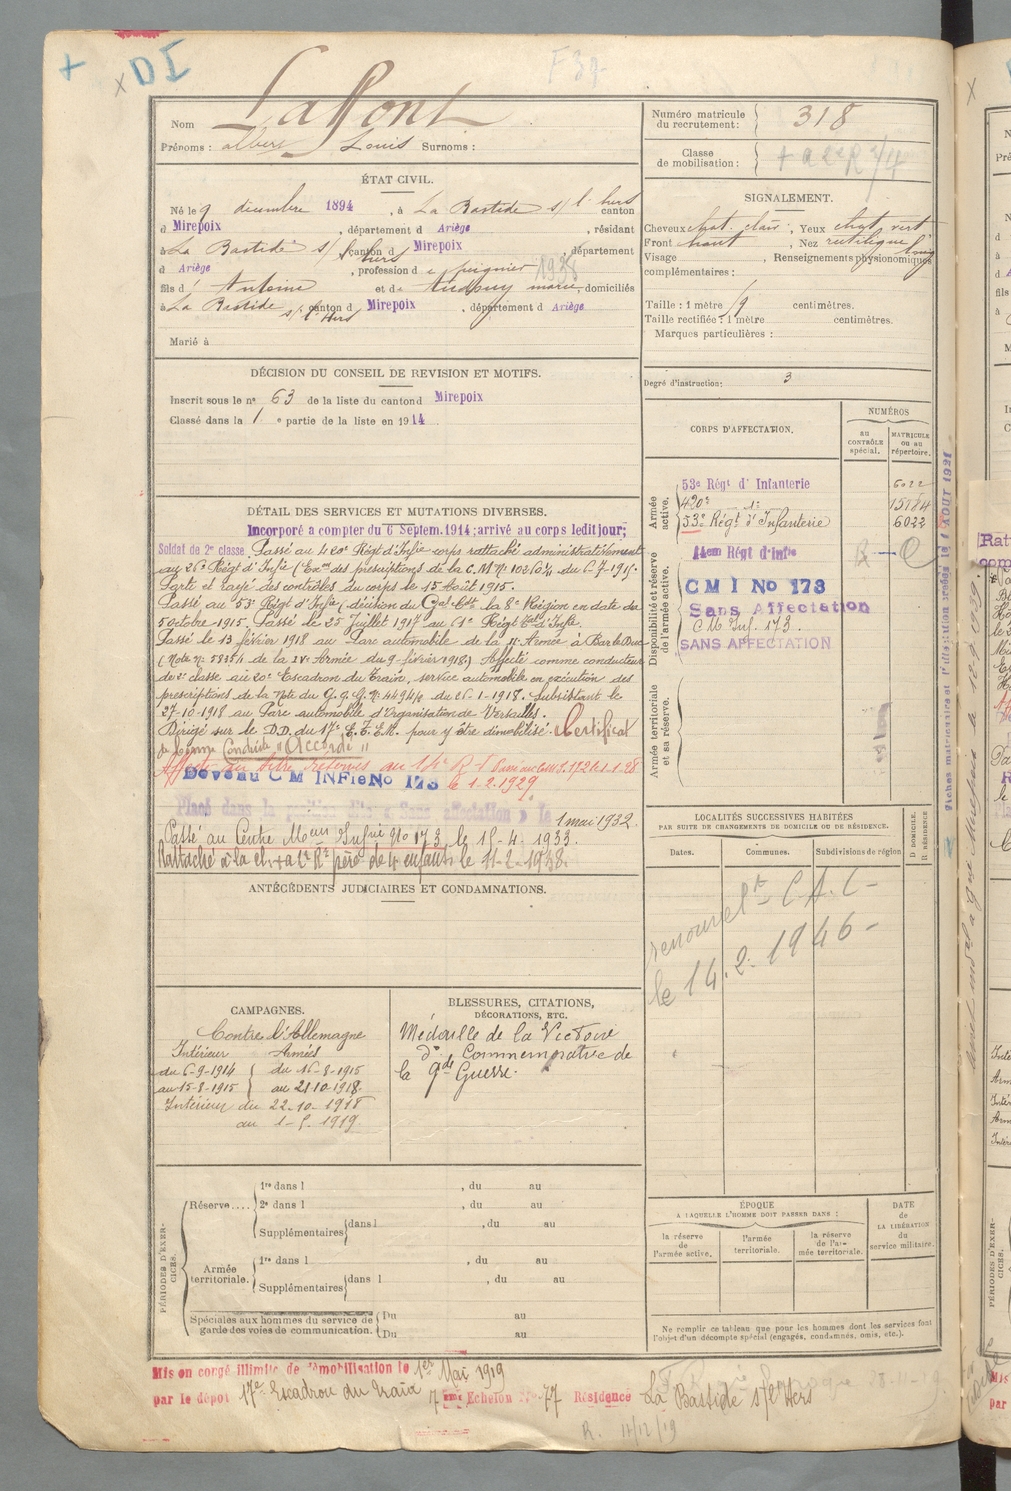 + X DI
Nom Laffont
Prénoms : Albert Louis Surnoms :
Numéro matricule du recrutement : 318
Classe de mobilisation :
ÉTAT CIVIL.
Né le 9 décembre 1894, à La Bastide s/ l'hers canton
d Mirepoix, département d Ariège, résidant
à La Bastide s/ l'hers canton d Mirepoix, département
d Ariège, profession de peignier 1938
fils d' Antoine et de marie, domiciliés
à La Bastide s/ l'Hers canton d Mirepoix, département d Ariège
Marié à
SIGNALEMENT.
Cheveux chat. clair, Yeux chat. vert
Front haut, Nez rectiligne long
Visage , Renseignements physionomiques
complémentaires :
Taille : 1 mètre centimètres.
Taille rectifiée : 1 mètre centimètres.
Marques particulières :
Degré d'instruction : 3
DÉCISION DU CONSEIL DE REVISION ET MOTIFS.
Inscrit sous le n° 63 de la liste du canton d Mirepoix
Classé dans la 1 e partie de la liste en 1914
DÉTAIL DES SERVICES ET MUTATIONS DIVERSES.
Incorporé a compter du 6 Septem. 1914; arrivé au corps ledit jour;
Soldat de 2e classe. Passé au 420e Régt d'Infie corps rattaché administrativement
au 26e Régt d'Infie (Exon des prescriptions de la C.M. N° du 6-7-1915.
Parti et rayé des contrôles du corps le 15 Août 1915.
Passé au 53e Régt d'Infie (décision du Gal Cdt la 8e Région en date du
5 octobre 1915. Passé le 25 Juillet 1917 au Régt d'Infie.
Passé le 13 février 1918 au Parc automobile de la Armée à Bar le Duc
(Note n° de la IVe Armée du 9 février 1918) Affecté comme conducteur
de 2e classe au 20e Escadron du Train, service automobile en exécution des
prescriptions de la note du G.Q.G. N° 44944 du 26-1-1918. Subsistant le
27-10-1918 au Parc automobile d'Organisation de Versailles.
Dirigé sur le D.D. du 17e E.T.E.M. pour y être démobilisé. Certificat
de bonne Conduite "Accordé"
Devenu C M INFie No 173 le 1-2-1929
Placé dans la position dite « Sans affectation » le 1 mai 1932.
Passé au Centre Mon Infie N° 173, le 15-4-1933.
Rattaché à la cl. père de 4 enfants le 11-2-1938.
CORPS D'AFFECTATION.
NUMÉROS
au CONTRÔLE spécial.
MATRICULE ou au répertoire.
Armée active.
53e Régt d' Infanterie 6022
420e d° 15184
53e Régt d'Infanterie 6022
Disponibilité et réserve de l'armée active.
Régt d'Infie
C M I No 173
Sans Affectation
C M Inf. 173.
SANS AFFECTATION
Armée territoriale et sa réserve.
ANTÉCÉDENTS JUDICIAIRES ET CONDAMNATIONS.
LOCALITÉS SUCCESSIVES HABITÉES
PAR SUITE DE CHANGEMENTS DE DOMICILE OU DE RÉSIDENCE.
Dates. Communes. Subdivisions de région D DOMICILE. R RÉSIDENCE
renouvelt C.A.C-
le 14.2.1946-
CAMPAGNES.
Contre l'Allemagne
Intérieur Armés
du 6-9-1914 du 16-8-1915
au 15-8-1915 au 21-10-1918.
Intérieur du 22-10-1918
au 1-5-1919.
BLESSURES, CITATIONS,
DÉCORATIONS, ETC.
Médaille de la Victoire
d° Commémorative de
la Gde Guerre.
PÉRIODES D'EXERCICES.
Réserve....
1re dans l , du au
2e dans l , du au
Supplémentaires dans l , du au
Armée territoriale.
1re dans l , du au
Supplémentaires dans l , du au
Spéciales aux hommes du service de garde des voies de communication.
Du au
Du au
ÉPOQUE
A LAQUELLE L'HOMME DOIT PASSER DANS :
la réserve de l'armée active.
l'armée territoriale.
la réserve de l'armée territoriale.
DATE de LA LIBÉRATION du service militaire.
Ne remplir ce tableau que pour les hommes dont les services font
l'objet d'un décompte spécial (engagés, condamnés, omis, etc.).
Mis en congé illimité de démobilisation le 1er Mai 1919
par le dépôt 17e Escadron du Train 7 ème Echelon N° 77 Résidence La Bastide s/l'Hers
R. 11/12/19